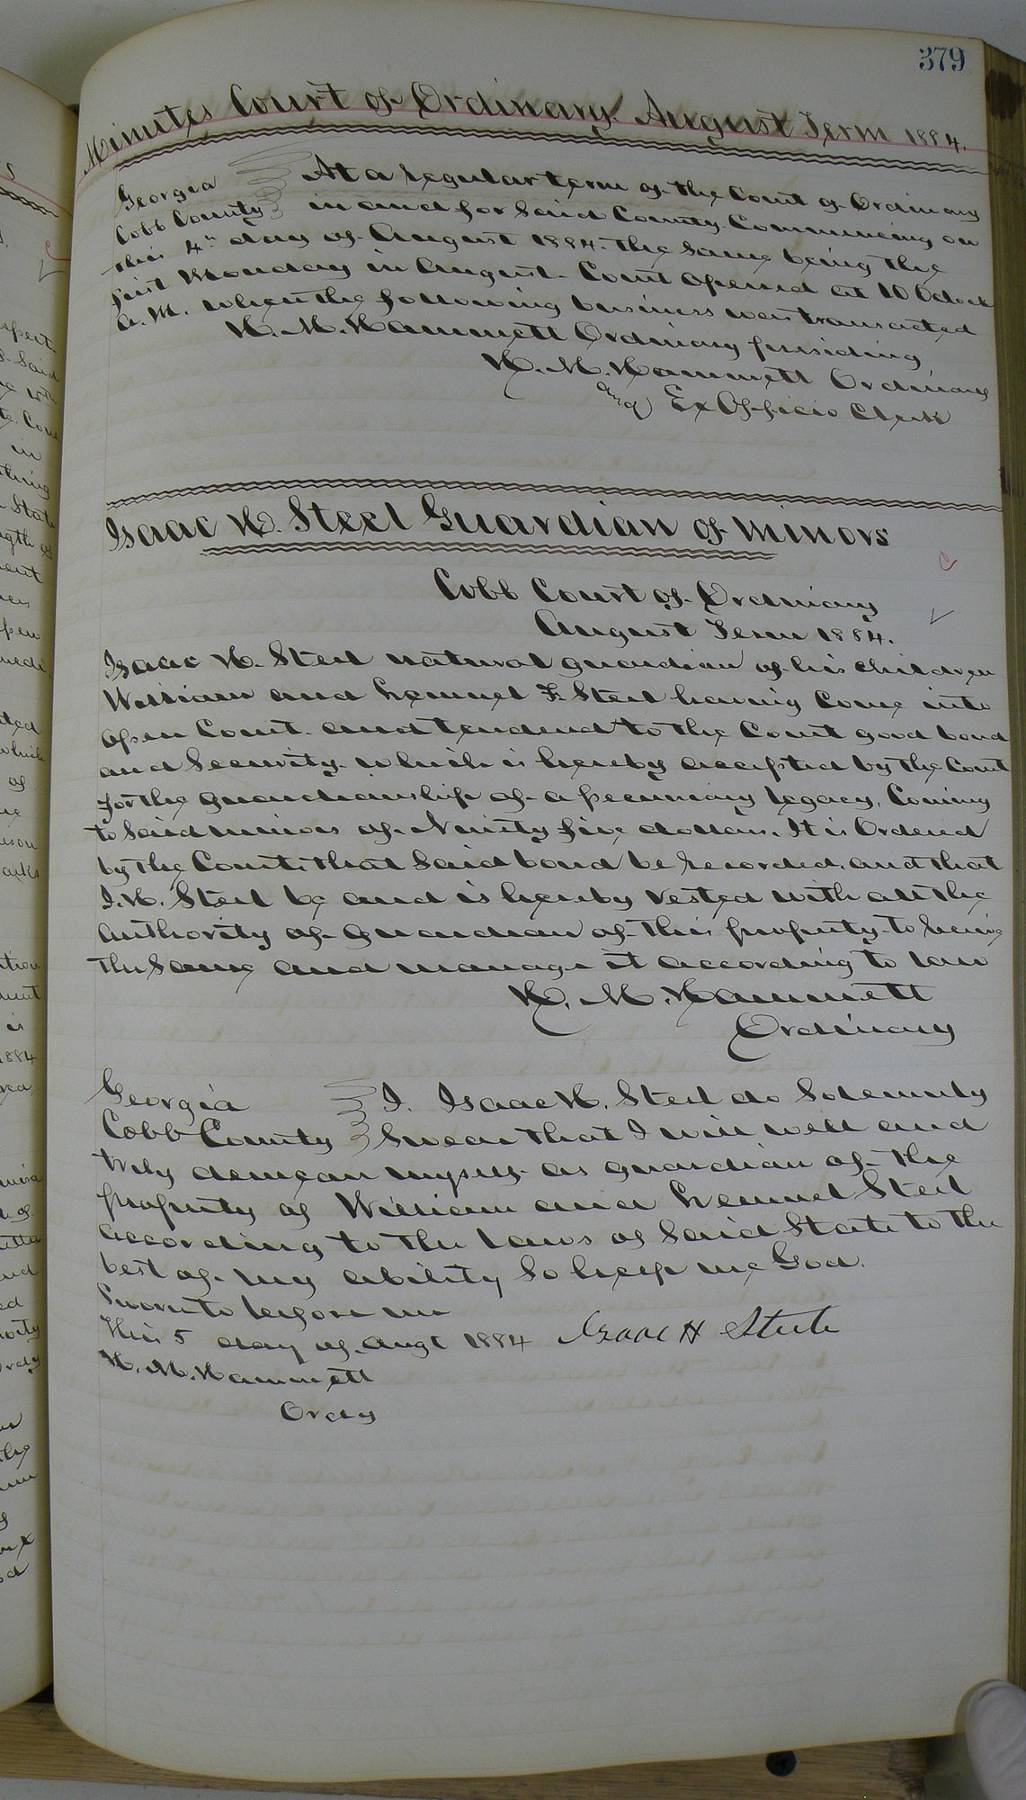 379
Minutes Court of Ordinary August Term 1884.
Georgia At a regular term of the Court of Ordinary
Cobb County in and for said County Commencing on
this 4th day of August 1884. the same being the
first Monday in August. Court opened at 10 Oclock
A.M. when the following business was transacted
H. M. Hammett Ordinary presiding
H. M. Hammett Ordinary
and Ex Officio Clerk
Isaac H. Steel Guardian of Minors
Cobb Court of Ordinary
August Term 1884.
Isaac H. Steel natural guardian of his children
William and Lemuel F. Steel having Come into
open Court. and tendered to the Court good bond
and Security. which is hereby accepted by the Court
for the guardianship of a pecuniary legacy, Coming
to said minors of Ninety five dollars. It is Ordered
by the Court that said bond be recorded, and that
I. H. Steel be and is hereby vested with all the
authority of guardian of this property to
the same and manage it according to law
H. M. Hammett
Ordinary
Georgia I. Isaac H. Steel do Solemnly
Cobb County Swear that I will well and
truly demean myself as guardian of the
property of William and Lemuel Steel
according to the laws of said State to the
best of my ability So help me God.
Sworn to before me
this 5 day of Augt 1884 Isaac H Steele
H. M. Hammett
Ordy